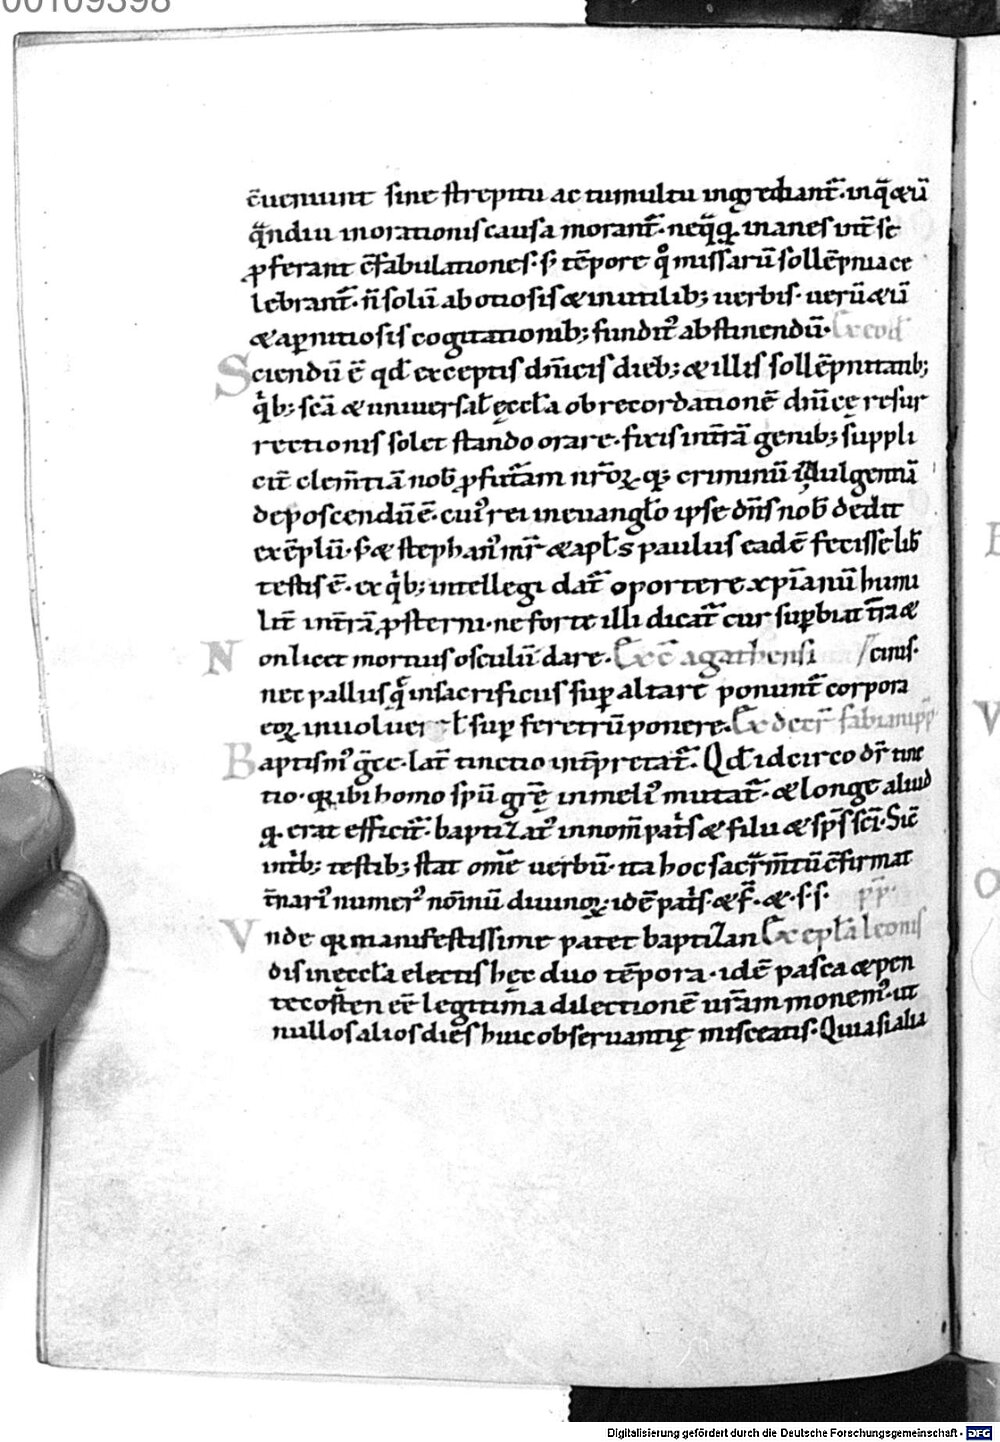 00109398
c̄ueniunt sine strepitu ac tumultu ingrediant᷑. inq̄ &ā
q̄ndiu inorationis causa morant᷑. neq̄q; inanes int̄ se
ꝓferant c̄fabulationes. s; tēpore qͦ missarū sollēpnia ce
lebrant᷑. n̄ solū ab otiosis & inutilib; uerbis. uerū &iā
& a ꝑnitiosis cogitationib; fundit᷒ abstinendū. Ex eod̄
Sciendū ē qd̄ exceptis dn̄icis dieb; & illis sollēpnitatib;
qͥb; scā & uniuersał ęccła ob recordationē dn̄icę resur
rectionis solet stando orare. fixis int̄rā genib; suppli
cit᷑ clem̄tiā nob̄ ꝓfutam nr̄oꝝ q; criminū indulgentiā
deposcendū ē. cui᷒ rei in euangło ipse dn̄s nob̄ dedit
exēplū. s; & stephan᷒ mr̄ & apłs paulus eadē fecisse lib̄
testis ē. ex qͥb; intellegi dat᷑ oportere xp̄ianū humi
lit᷑ int̄rā ꝓsterni. ne forte illi dicat᷑ cur suꝑbiat t̄ra &
Non licet mortuis osculū dare. Ex c̄ agathensi // cinis.
nec pallis qͥ in sacrificiis suꝑ altare ponunt᷑ corpora
eoꝝ inuoluere ł suꝑ feretrū ponere. Ex decr̄ fabiani pp̄
Baptism᷒ gͣce. lat᷑ tinctio int᷑pretat᷑. Qd̄ idcirco dr̄ tinc
tio. quia ibi homo spū grē in meli᷒ mutat᷑. & longe aliud
q̄ erat efficit᷑. baptizat᷒ in nom̄ pat̄s & filii & sp̄s scī. Sic̄
int̄b; testib; stat om̄e uerbū. ita hoc sacrm̄tū c̄firmat
t̄nari᷒ numer᷒ nōinū diuinoꝝ. idē pat̄s. & f̄. & . s. s. pp̄.
Vnde quia manifestissime patet baptizan Ex epła leonis
dis in ęccła electis hęc duo tēpora. idē pasca & pen
tecosten eē legitima dilectionē ur̄am monem᷒. ut
nullos alios dies huic obseruantię misceatis. Quia si alia
Digitalisierung gefördert durch die Deutsche Forschungsgemeinschaft - DFG